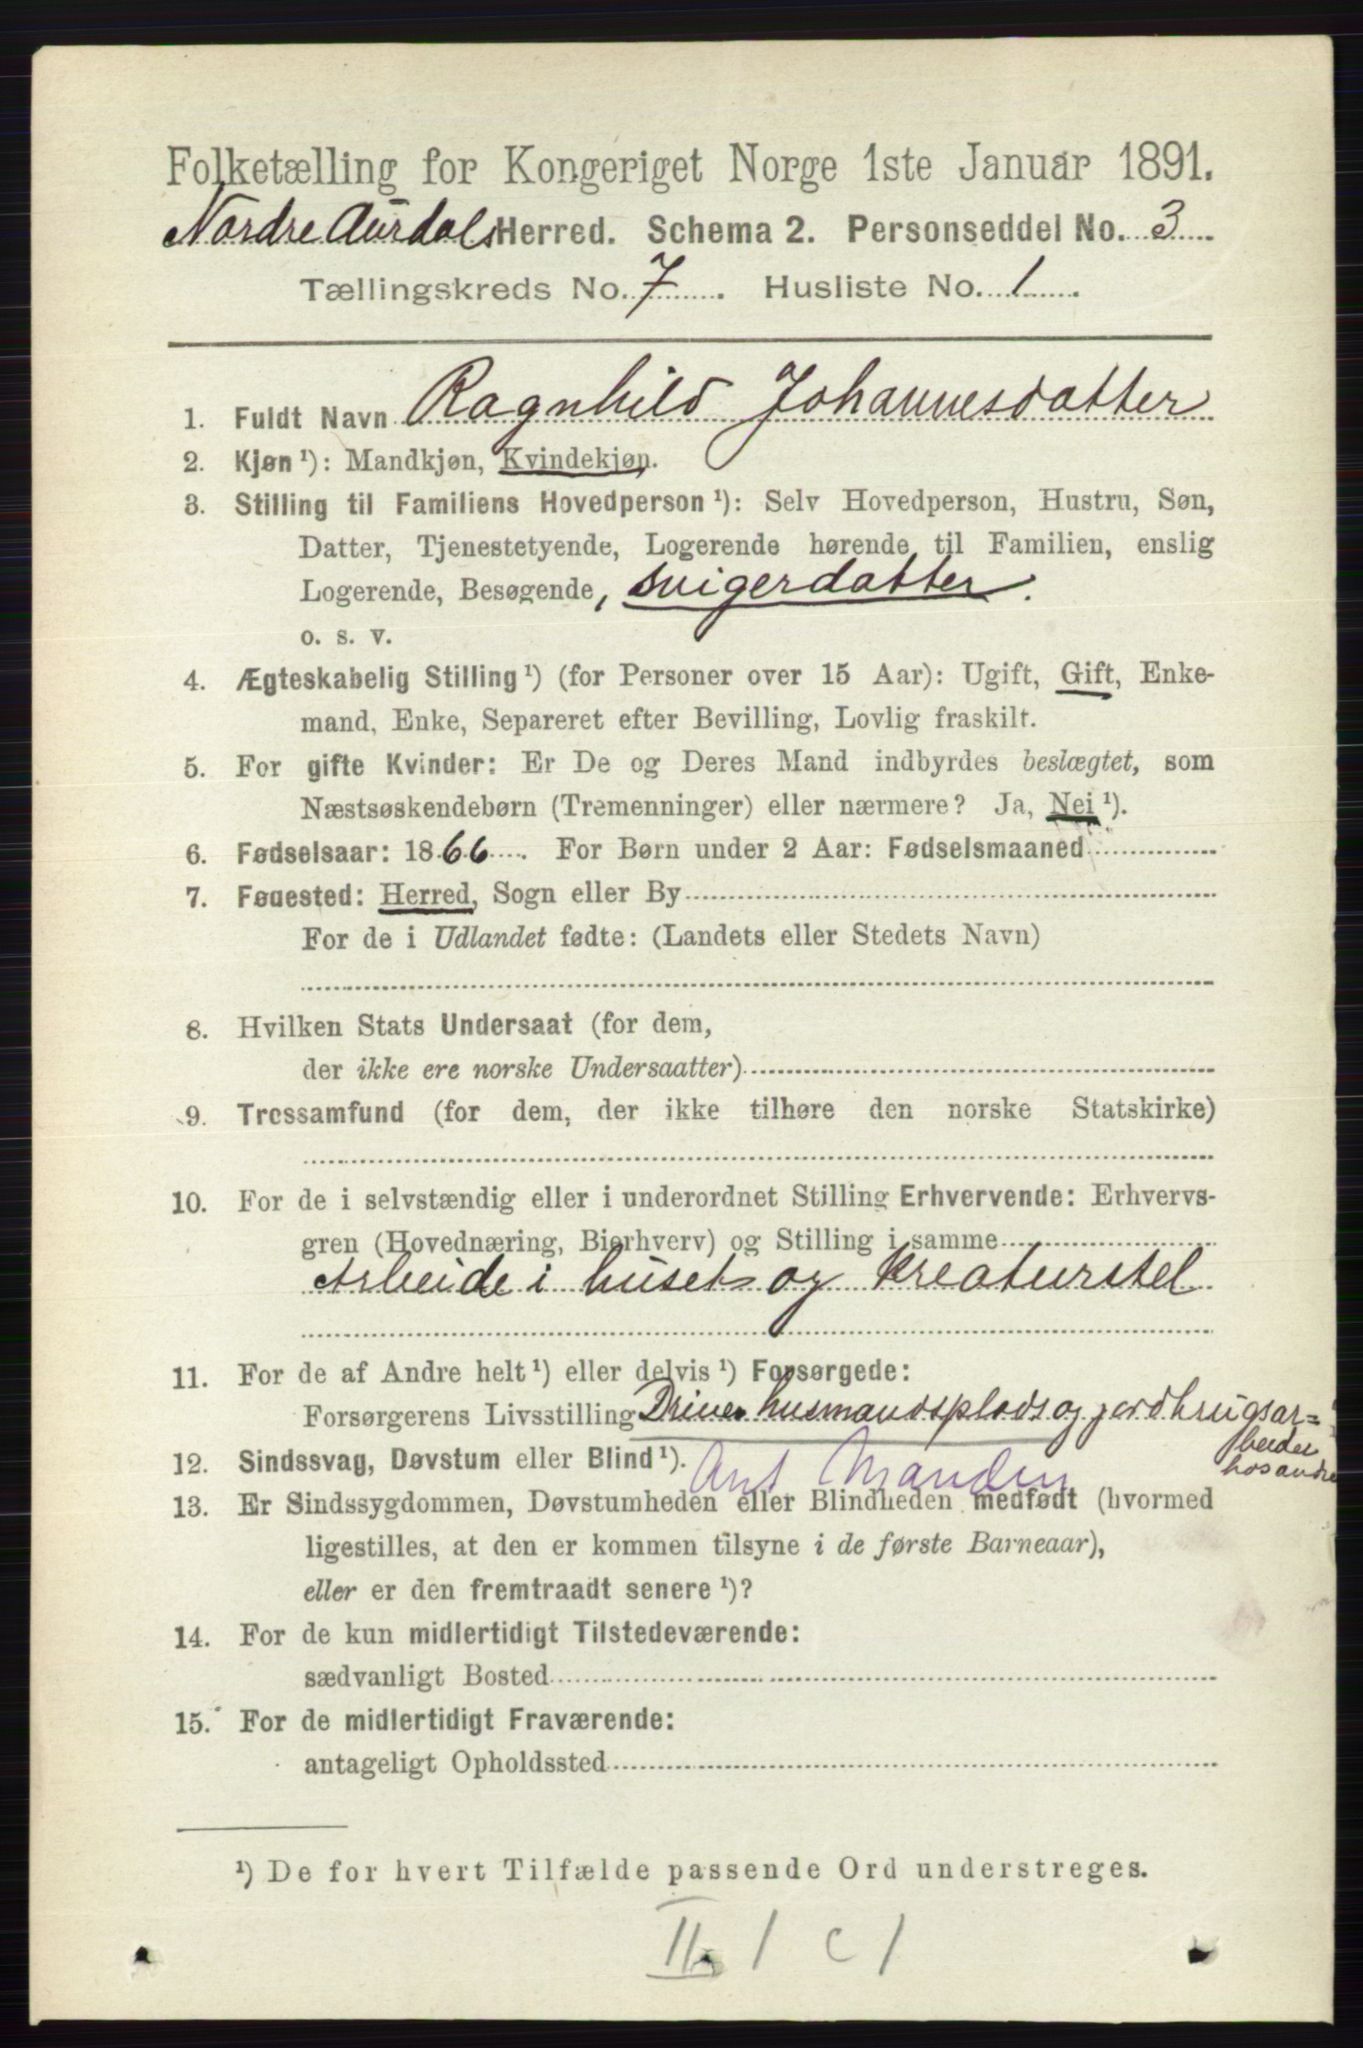 Folketælling for Kongeriget Norge 1ste Januar 1891.
Nordre Aurdals Herred. Schema 2. Personseddel No. 3
Tællingskreds No. 7. Husliste No. 1.
1. Fuldt Navn Ragnhild Johannesdatter
2. Kjøn ¹): Mandkjøn, Kvindekjøn.
3. Stilling til Familiens Hovedperson ¹): Selv Hovedperson, Hustru, Søn,
Datter, Tjenestetyende, Logerende hørende til Familien, enslig
Logerende, Besøgende, svigerdatter.
o. s. v.
4. Ægteskabelig Stilling ¹) (for Personer over 15 Aar): Ugift, Gift, Enke-
mand, Enke, Separeret efter Bevilling, Lovlig fraskilt.
5. For gifte Kvinder: Er De og Deres Mand indbyrdes beslægtet, som
Næstsøskendebørn (Tremenninger) eller nærmere? Ja, Nei ¹).
6. Fødselsaar: 1866. For Børn under 2 Aar: Fødselsmaaned
7. Føuested: Herred, Sogn eller By
For de i Udlandet fødte: (Landets eller Stedets Navn)
8. Hvilken Stats Undersaat (for dem,
der ikke ere norske Undersaatter)
9. Trossamfund (for dem, der ikke tilhøre den norske Statskirke)
10. For de i selvstændig eller i underordnet Stilling Erhvervende: Erhvervs-
gren (Hovednæring, Bierhverv) og Stilling i samme
Arbeide i huset og kreaturstel
11. For de af Andre helt ¹) eller delvis ¹) Forsørgede:
Forsørgerens Livsstilling Driver husmandsplads og jordbrugsar=
beider
12. Sindssvag, Døvstum eller Blind ¹). Manden hos andre
13. Er Sindssygdommen, Døvstumheden eller Blindheden medfødt (hvormed
ligestilles, at den er kommen tilsyne i de første Barneaar),
eller er den fremtraadt senere ¹)?
14. For de kun midlertidigt Tilstedeværende:
sædvanligt Bosted
15. For de midlertidigt Fraværende:
antageligt Opholdssted
¹) De for hvert Tilfælde passende Ord understreges.
II. 1 c 1